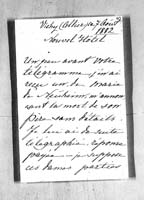 Vichy (Allier) ce 7 Août
1882
Nouvel Hôtel
Un peu avant votre
télégramme j'avais
reçu un de Marie
de Neuheim m'annon
cant la mort de son
père sans détails.
Je lui ai de suite
télégraphié, réponse
payée — je suppose
ces dames parties